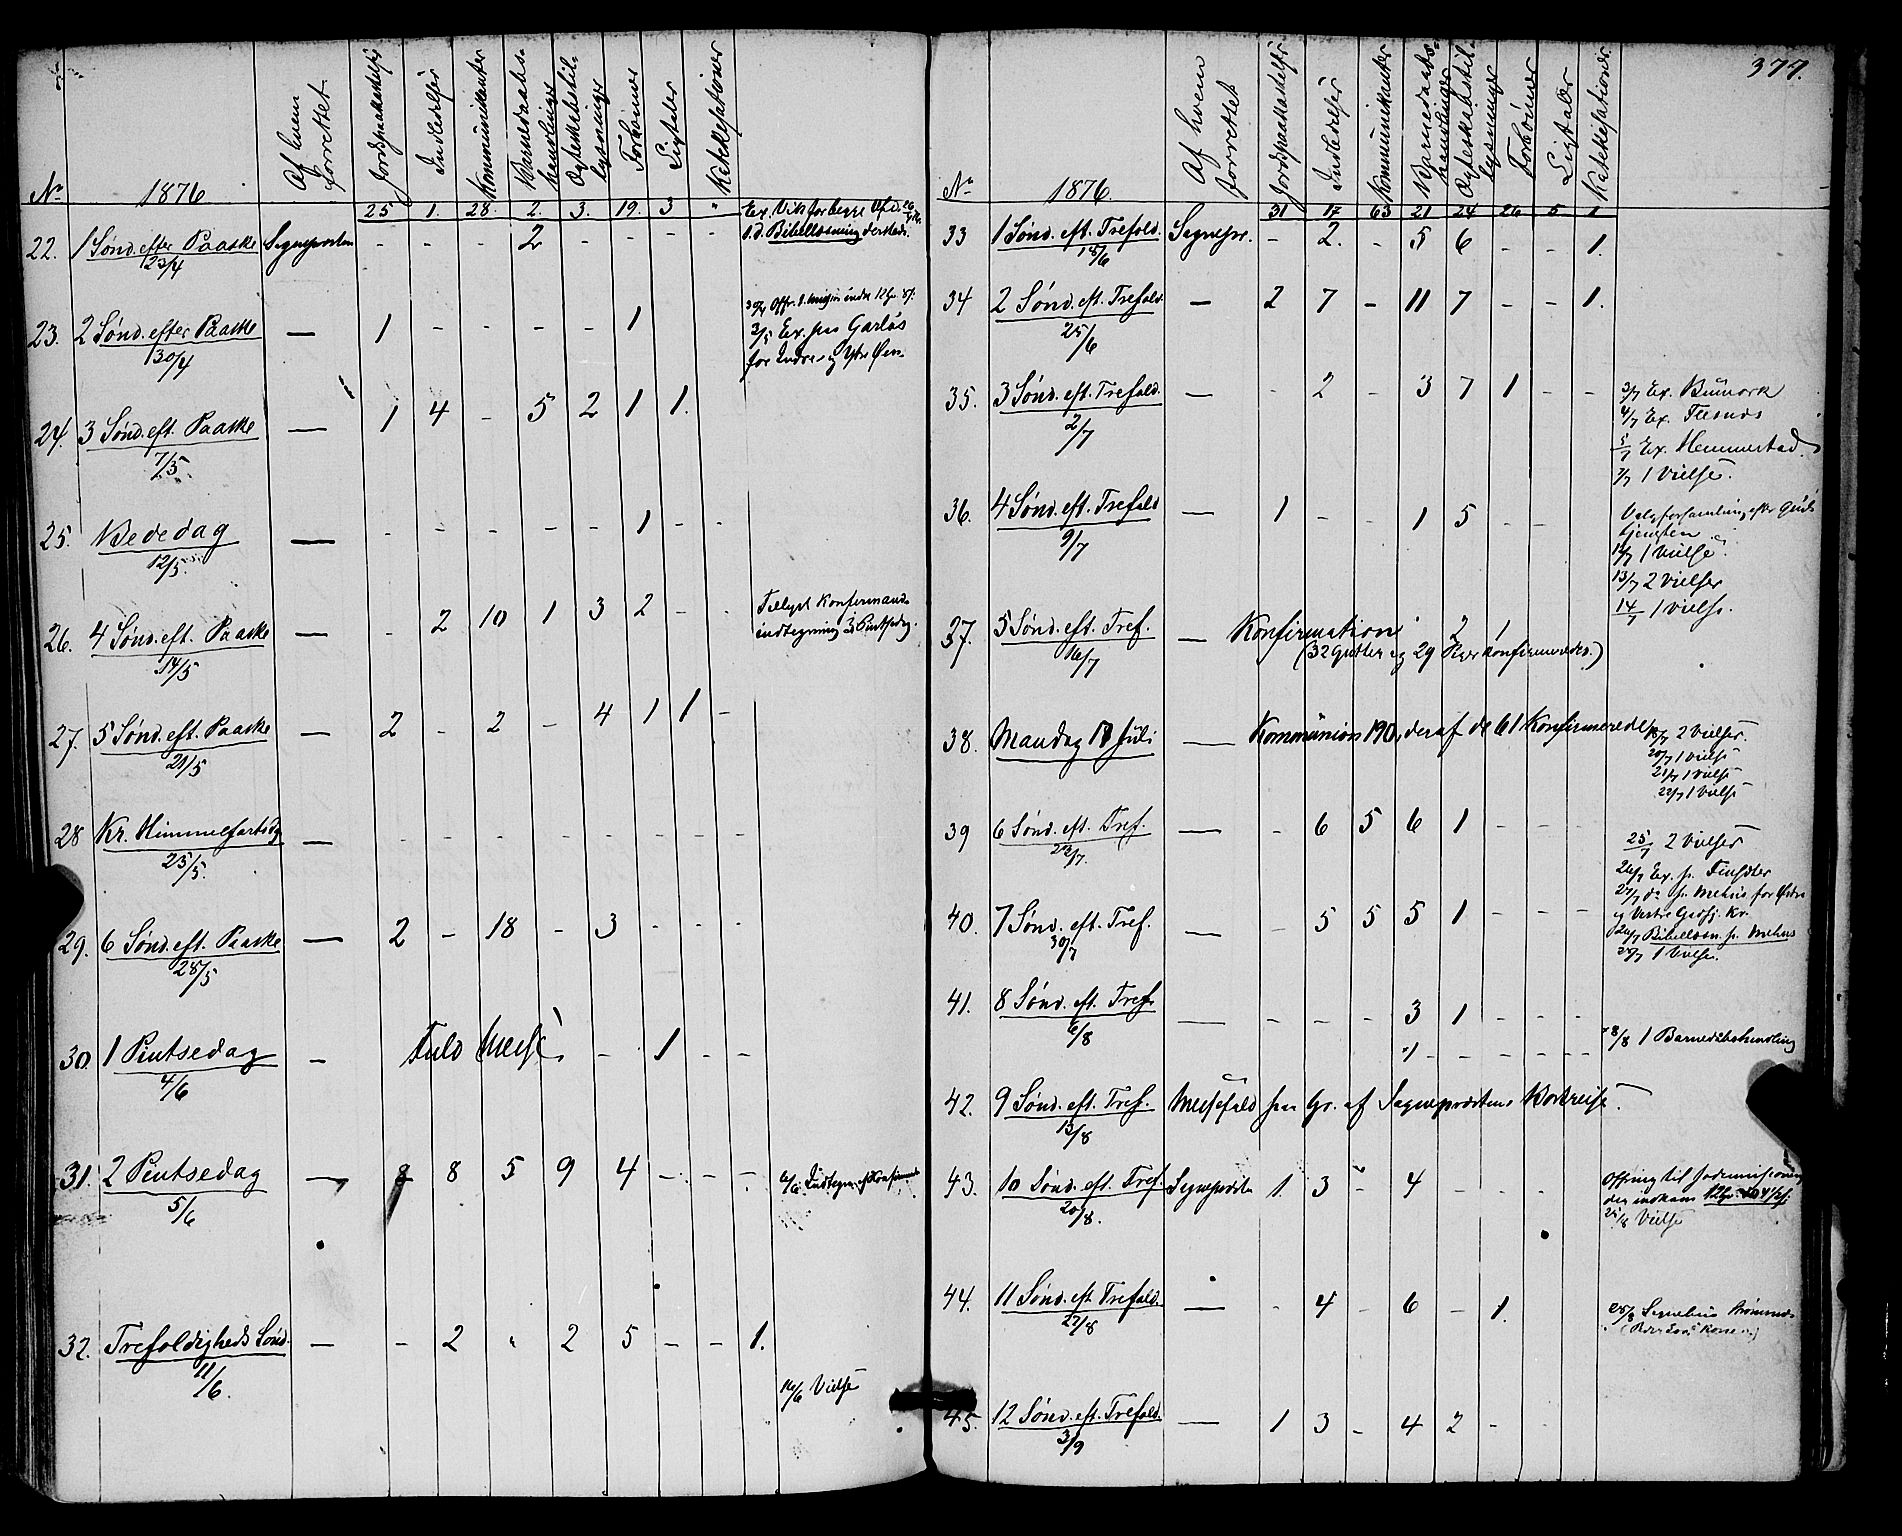 No 1876 Af hvem forrettet Jordspaakastelser Indledelser Kommunikanter Barnedaabshandlinger Ægteskabstillysninger Forbønner Ligtaler Katekisationer
25 1. 28. 2. 3. 19. 3 "
22. 1 Sønd. efter Paaske Sognepresten - - - 2 - - - -
23/4
s. d. Bibellæsning dersteds.
23. 2 Sønd. efter Paaske — 1 - - - - 1
30/4
3/5 Ex. paa Garlos
for Indre- og Ytre
24. 3 Sønd. eft. Paaske — 1 4 - 5 2 1 1.
7/5.
25. Bededag — - - - - - 1 - -
12/5.
26. 4 Sønd. eft. Paaske — - 2 10 1 3 2 - -
14/5
Tillyst Konfirmand-
indtegning 3d Pintsedag.
27. 5 Sønd. eft. Paaske — 2 - 2 - 4 1 1 -
21/5
28 Kr. Himmelfartsdg — - - - - - - - -
25/5.
29. 6 Sønd. eft. Paaske — 2 - 18 - 3 - - -
28/5
30. 1 Pintsedag — Fuld Messe - - 1 - -
4/6
31. 2 Pintsedag — 8 8 5 9 4 - - -
5/6
6/6 Indtegn. af Konfirmand
32. Trefoldigheds Sønd. — - 2 " 2 5 - - 1.
11/6.
16/6 Vielse
377.
No 1876. Af hvem forrettet Jordspaakastelser Indledelser Kommunikanter Barnedaabshandlinger Ægteskabstillysninger Forbønner Ligtaler Katekisationer
31 17 63 21 24 26 5 1
33 1 Sønd. eft. Trefold. Sognepr. - 2. - 5 6 - - 1.
18/6
34 2 Sønd. eft. Trefold. — 2 7 - 11 7 - - 1.
25/6
35. 3 Sønd. eft. Trefold. — - 2 - 3 7 1 - -
2/7
3/7 Ex. Bunork
4/7 Ex. Flesnes
5/7 Ex. Hemmestad.
7/7 1 Vielse.
36. 4 Sønd. eft. Trefold — 1 - - 1 5 - -
9/7
Valgforsamling efter Guds-
tjenesten
1 Vielse.
13/7 2 Vielser
14/7 1 Vielse.
37. 5 Sønd. eft. Tref. — Konfirmation 2 1
16/7
(32 Gutter og 29 Piger konfirmeredes.)
38. Mandag 17 Juli — Kommunion 190, deraf de 61 Konfirmerede
18/7 2 Vielser.
20/7 1 Vielse
21/7 1 Vielse
22/7 1 Vielse
39 6 Sønd. eft. Tref. — - 6 5 6 1 - - -
23/7.
25/7 2 Vielser
26/7 Ex. p.
27/7 do p. Melnes for
40. 7 Sønd. eft. Tref. — - 5 5 5 1 - - -
30/7
Bibellæsn. p. Melnes
1 Vielse.
41. 8 Sønd. eft. Tref. — - - - 3 1 - - -
6/8
1 - - - - -
8/8 1 Barnedaabshandling
42. 9 Sønd. eft. Tref. Messefald paa Gr. af Sognepræstens Bortreise.
13/8
43. 10 Sønd. eft. Tref. Sognepresten 1. 3 - 4 - - -
20/8.
Offring til Jødemissionen
der indkom
Vielse
44. 11 Sønd. eft. Trefold. — - 4 - 6 - 1.
27/8
45. 12 Sønd. eft. Trefold. — 1 3 - 4 2 - -
3/9